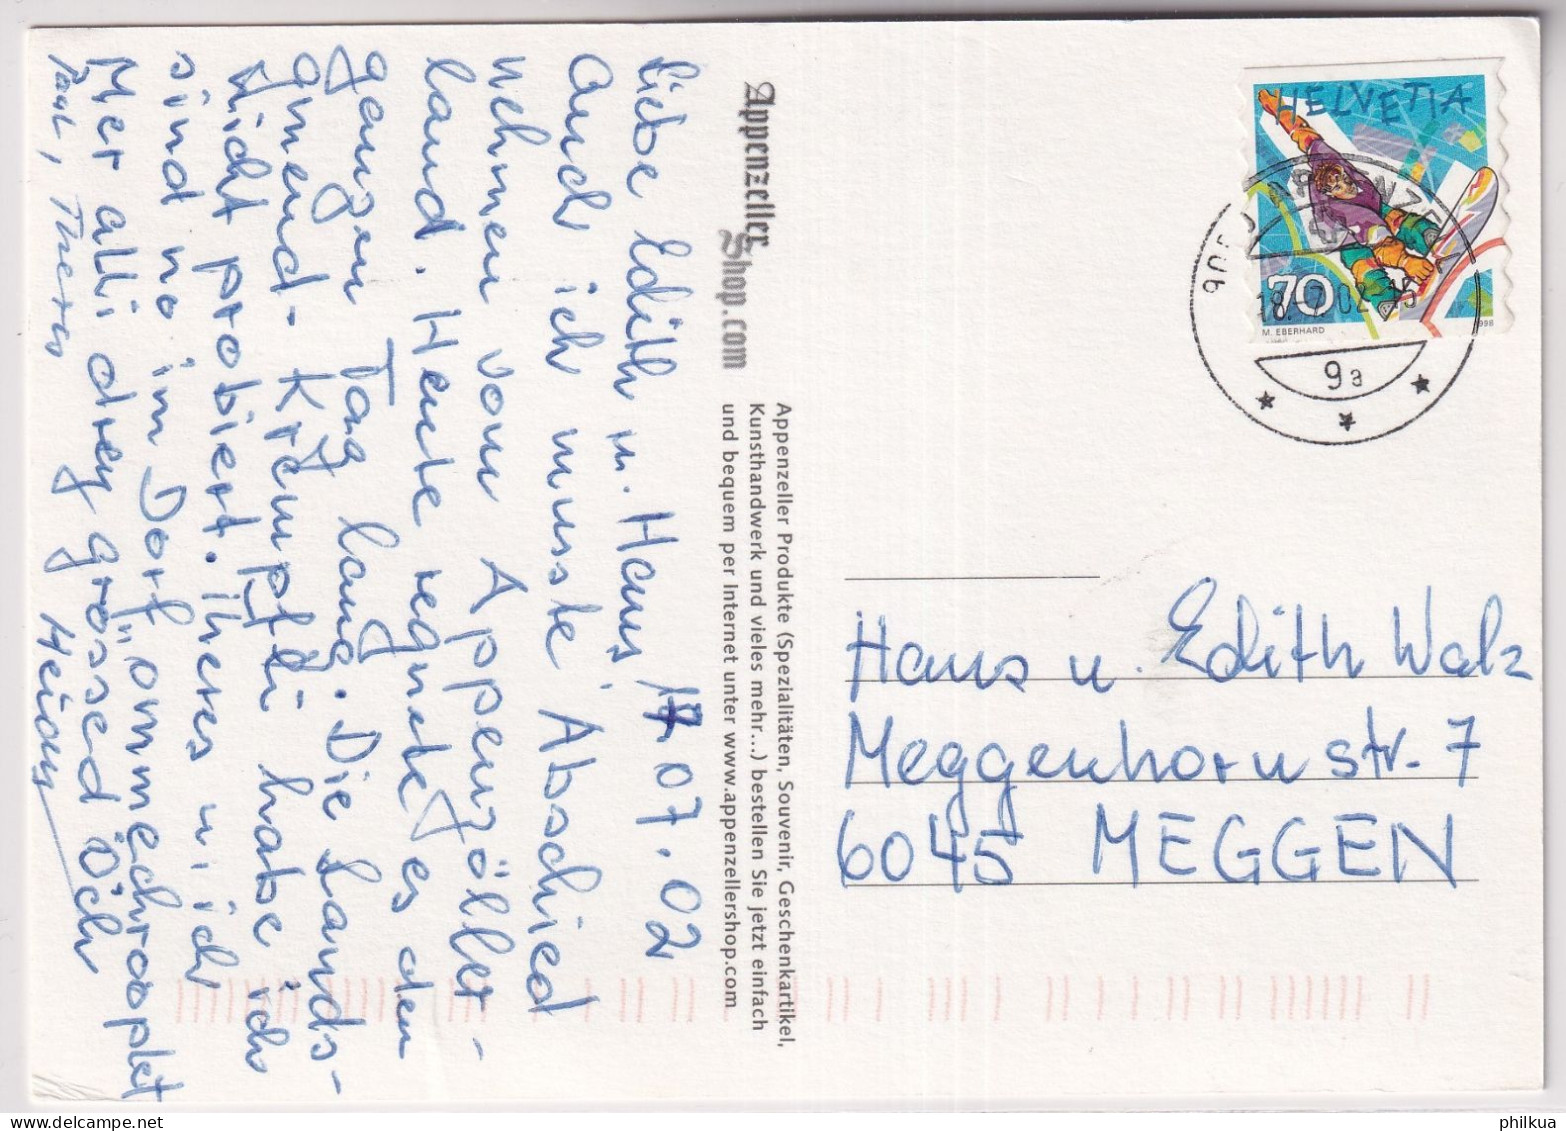 17.07.02
Liebe Edith u. Hans
Auch ich musste Abschied
nehmen vom Appenzöller-
land. Heute regnet es den
ganzen Tag lang. Die Lands-
gmeind-Krömpfli habe ich
nicht probiert. iheres mich
sind no im Dorf ommechrooplet
Mer alli drey grössed Öch
Paul, Theres Heidy
Appenzeller
Shop.com
Appenzeller Produkte (Spezialitäten, Souvenir, Geschenkartikel,
Kunsthandwerk und vieles mehr...) bestellen Sie jetzt einfach
und bequem per Internet unter www.appenzellershop.com
HELVETIA
70
M. EBERHARD
1998
9050 APPENZELL
18.-7.02-15
9a
Hans u. Edith Walz
Meggenhornstr. 7
6045 MEGGEN
philkua